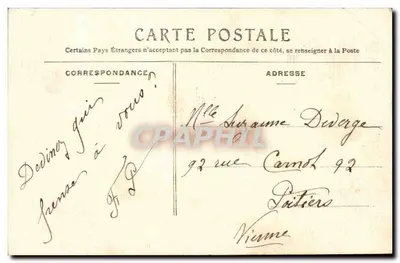 CARTE POSTALE
Certains Pays Étrangers n'acceptant pas la Correspondance de ce côté, se renseigner à la Poste
CORRESPONDANCE
ADRESSE
Devinez qui
pense à vous!
F D
Mlle Suzanne Deverge
92 rue Carnot 92
Poitiers
Vienne
CPAPHIL